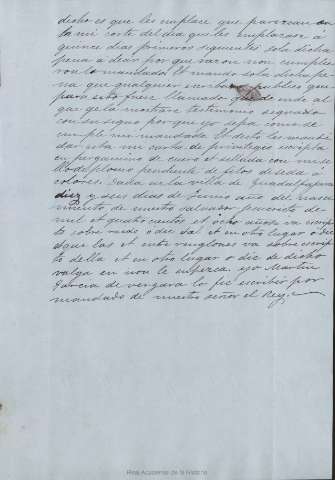 dicho es que les emplase que parezcan an
te mi corte del dia que les emplasare á
quince dias primeros siguientes sola dicha
pena a desir por que rason non cumplie
ron lo mandado. Et mando sola dicha pe
na que qualquier escribano publico que
para esto fuere llamado que de ende al
que ge la mostrare testimonio signado
con su signo porque yo sepa como se
cumple mi mandado. Et desto les mandé
dar esta mi carta de privilegio escripta
en pergamino de cuero et sellada con mi se
llo de plomo pendiente de filos de seda á
colores. Dada en la villa de Guadalfajara
diez y seis dias de Junio año del nasci
miento de nuestro salvador Jesucristo de
mil et quatrocientos et ocho años. va escrip
to sobre raido o diz sal et en otro lugar o diz
que las et entre renglones va sobre escrip
to della et en otro lugar o diz de dicho
valga en non le empezca. yo Martin
Garcia de vergara lo fis escribir por
mandado de nuestro señor el Rey.
Real Academia de la Historia